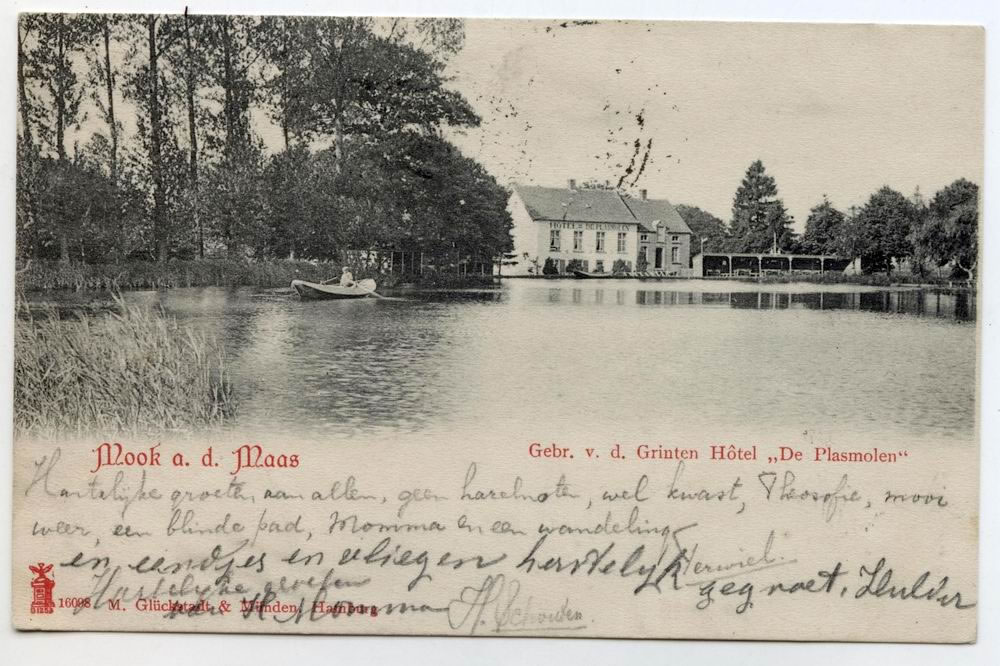 HOTEL DE PLASMOLEN
Mook a. d. Maas
Gebr. v. d. Grinten Hôtel „De Plasmolen“
Hartelijke groeten, aan allen, geen hazelnoten, wel kwast, Theosofie, mooi
weer, een blinde pad, Momma en een wandeling
en eendjes en vliegen hartelijk gegroet, Hulder
Hartelijke groeten
van H. Momma
H. Schouten
16098 M. Glückstadt & Münden, Hamburg